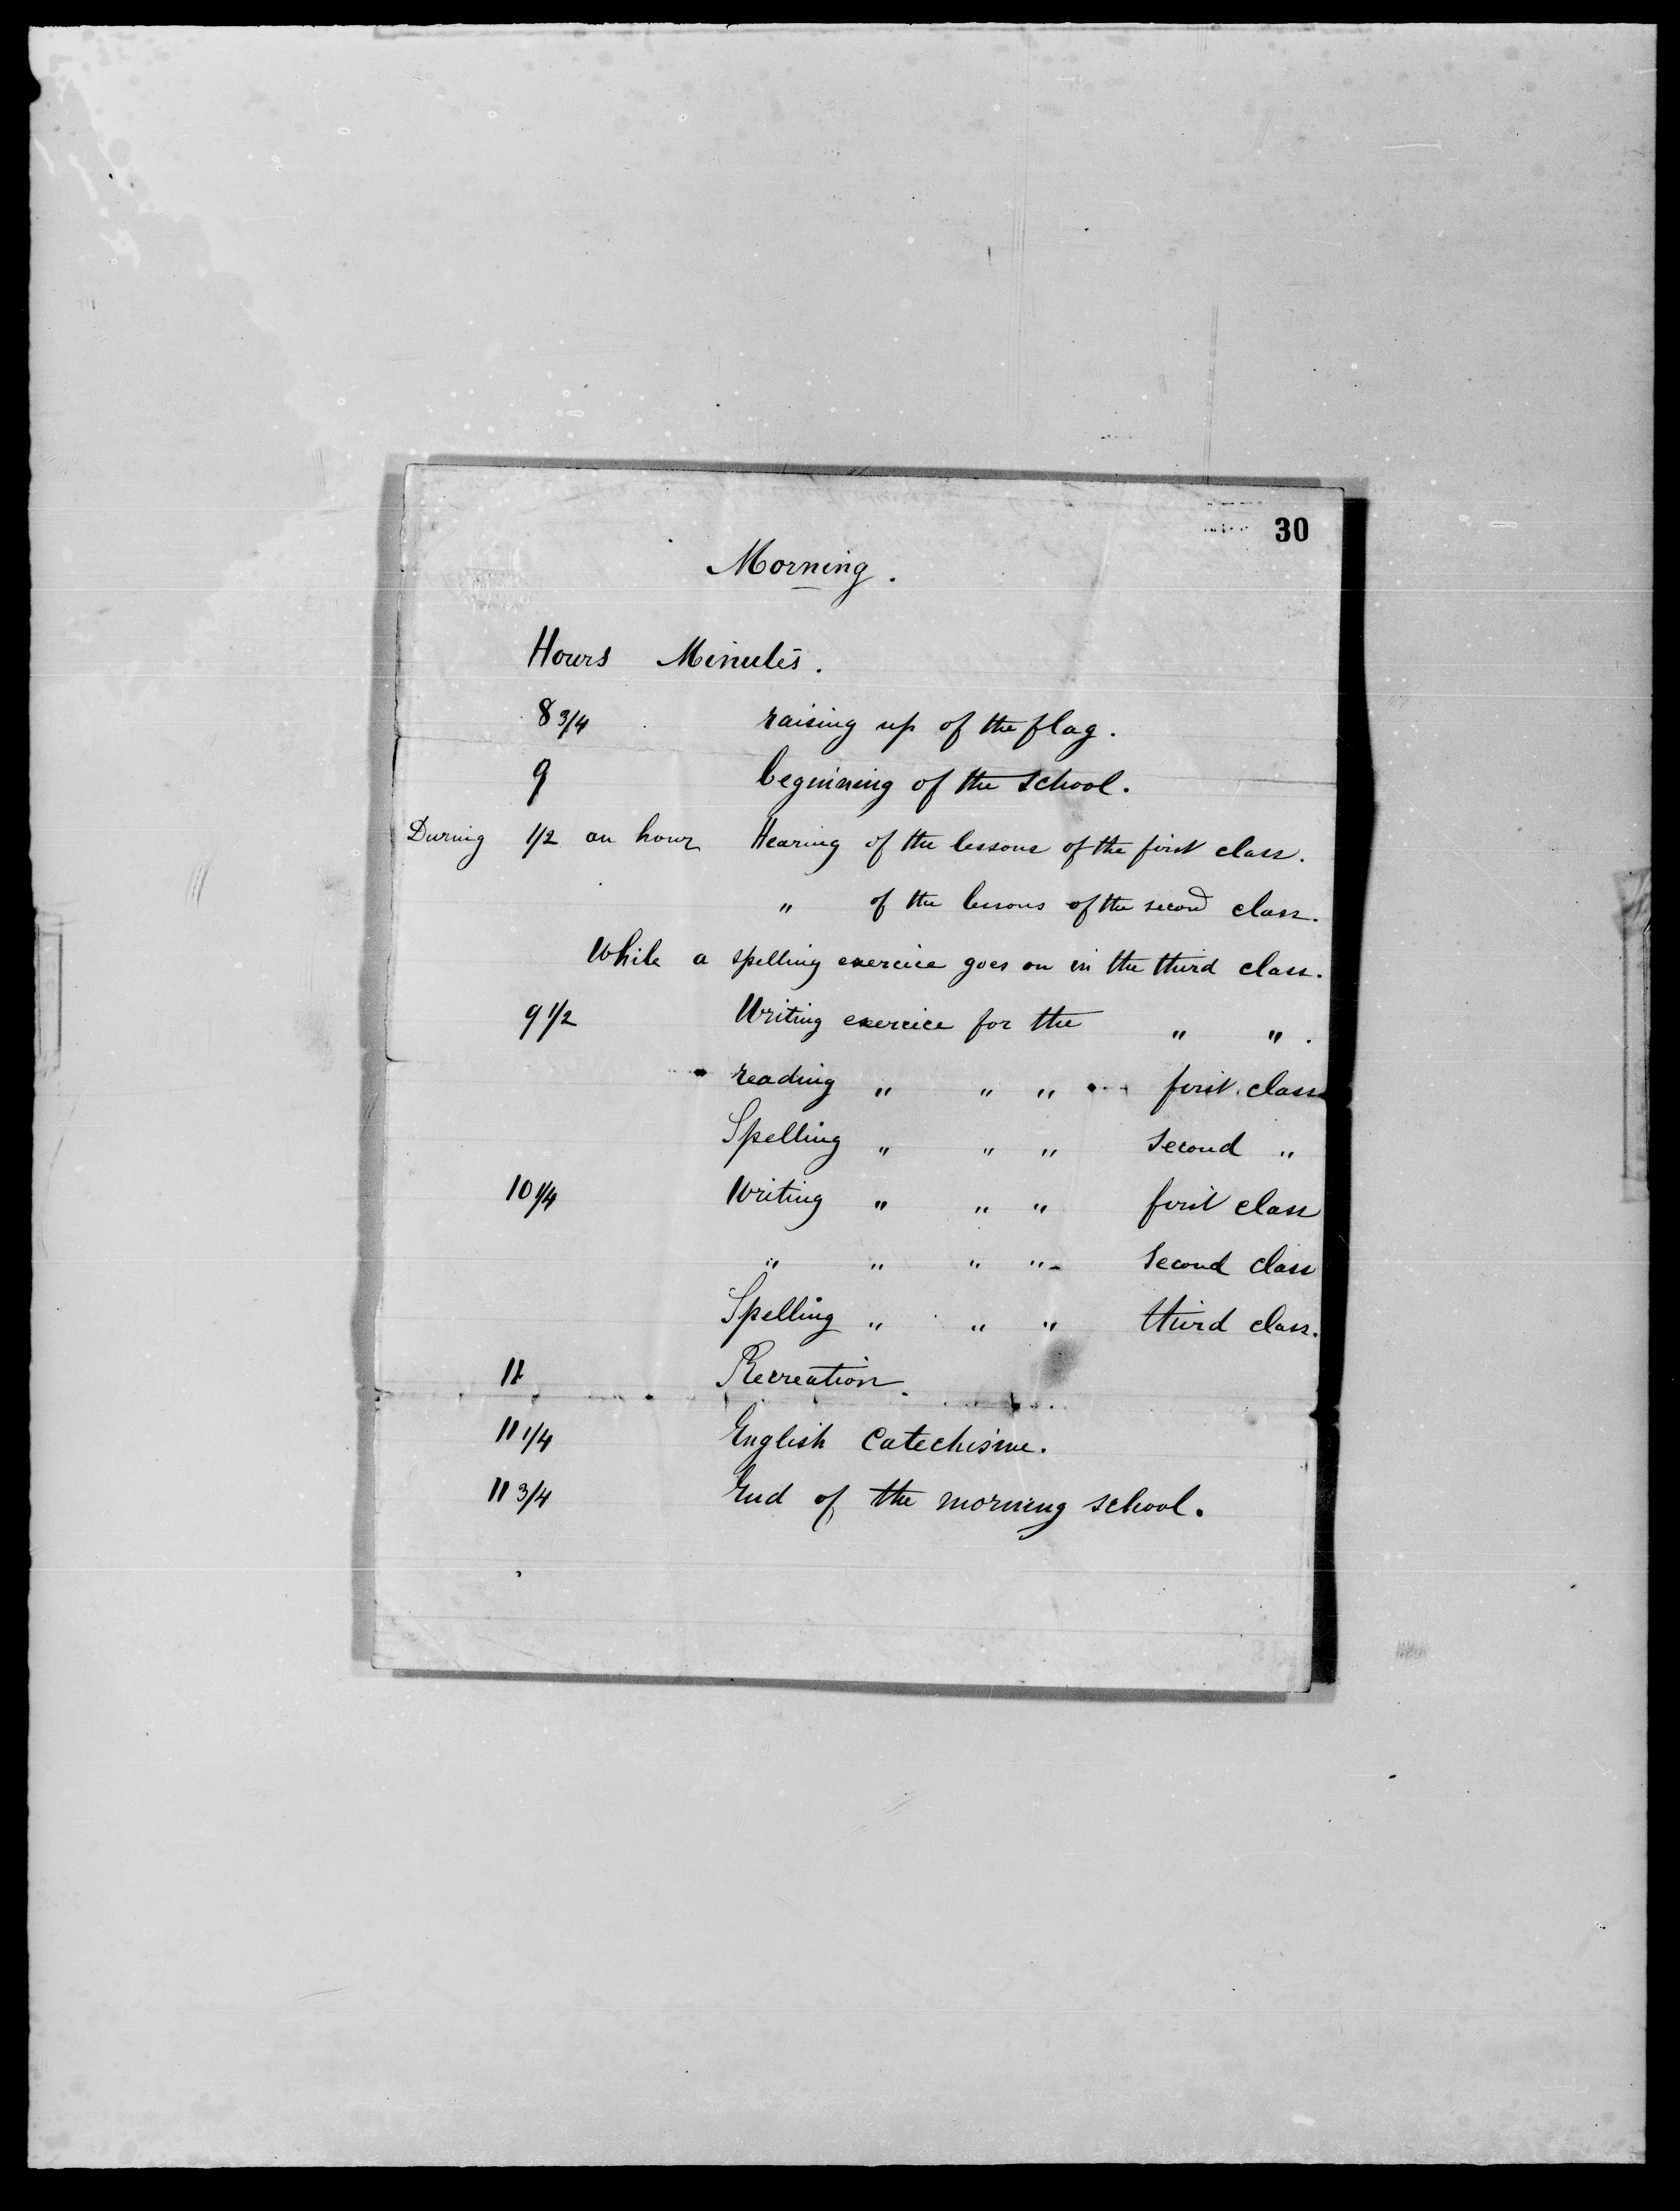 30
Morning.
Hours Minutes.
8 3/4 raising up of the flag.
9 beginning of the school.
During 1/2 an hour Hearing of the lessons of the first class.
" of the lessons of the second class.
While a spelling exercice goes on in the third class.
9 1/2 Writing exercice for the " ".
reading " " " first class
Spelling " " " second "
10 1/4 Writing " " " first class
" " " " second class
Spelling " " " third class.
11 Recreation.
11 1/4 English Catechisme.
11 3/4 End of the morning school.